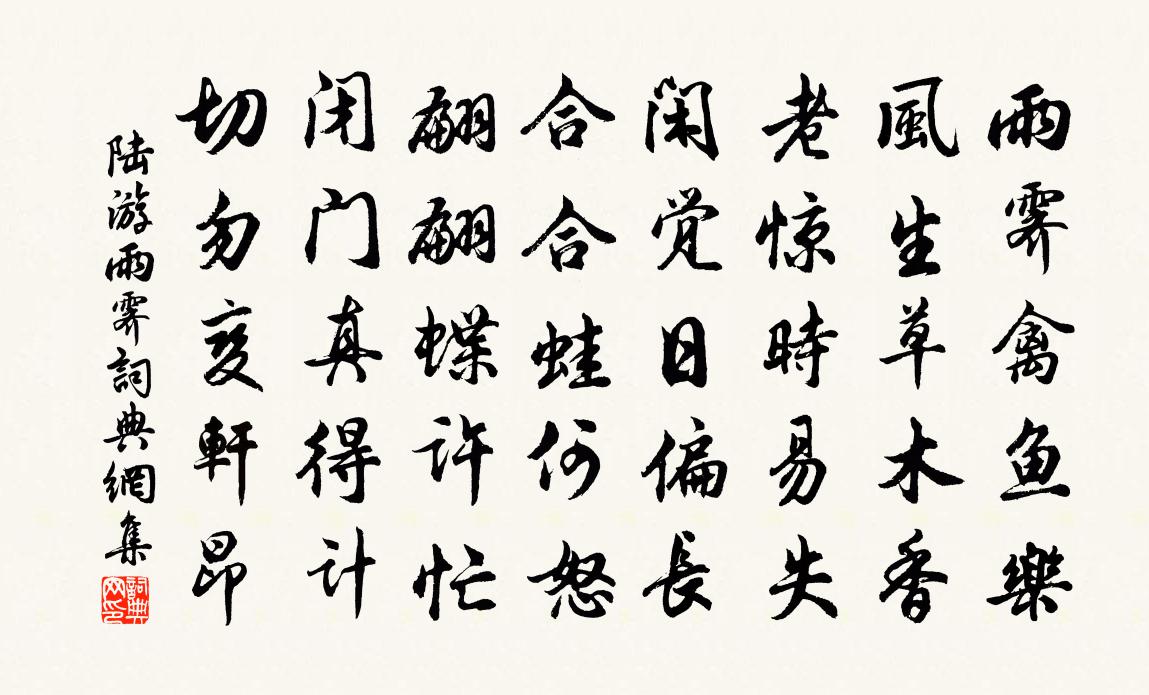 雨霁禽鱼樂
風生草木香
老惊時易失
闲觉日偏長
合合蛙何怒
翩翩蝶许忙
闭门真得计
切勿变軒昂
陆游雨霁詞典網集
詞典网印